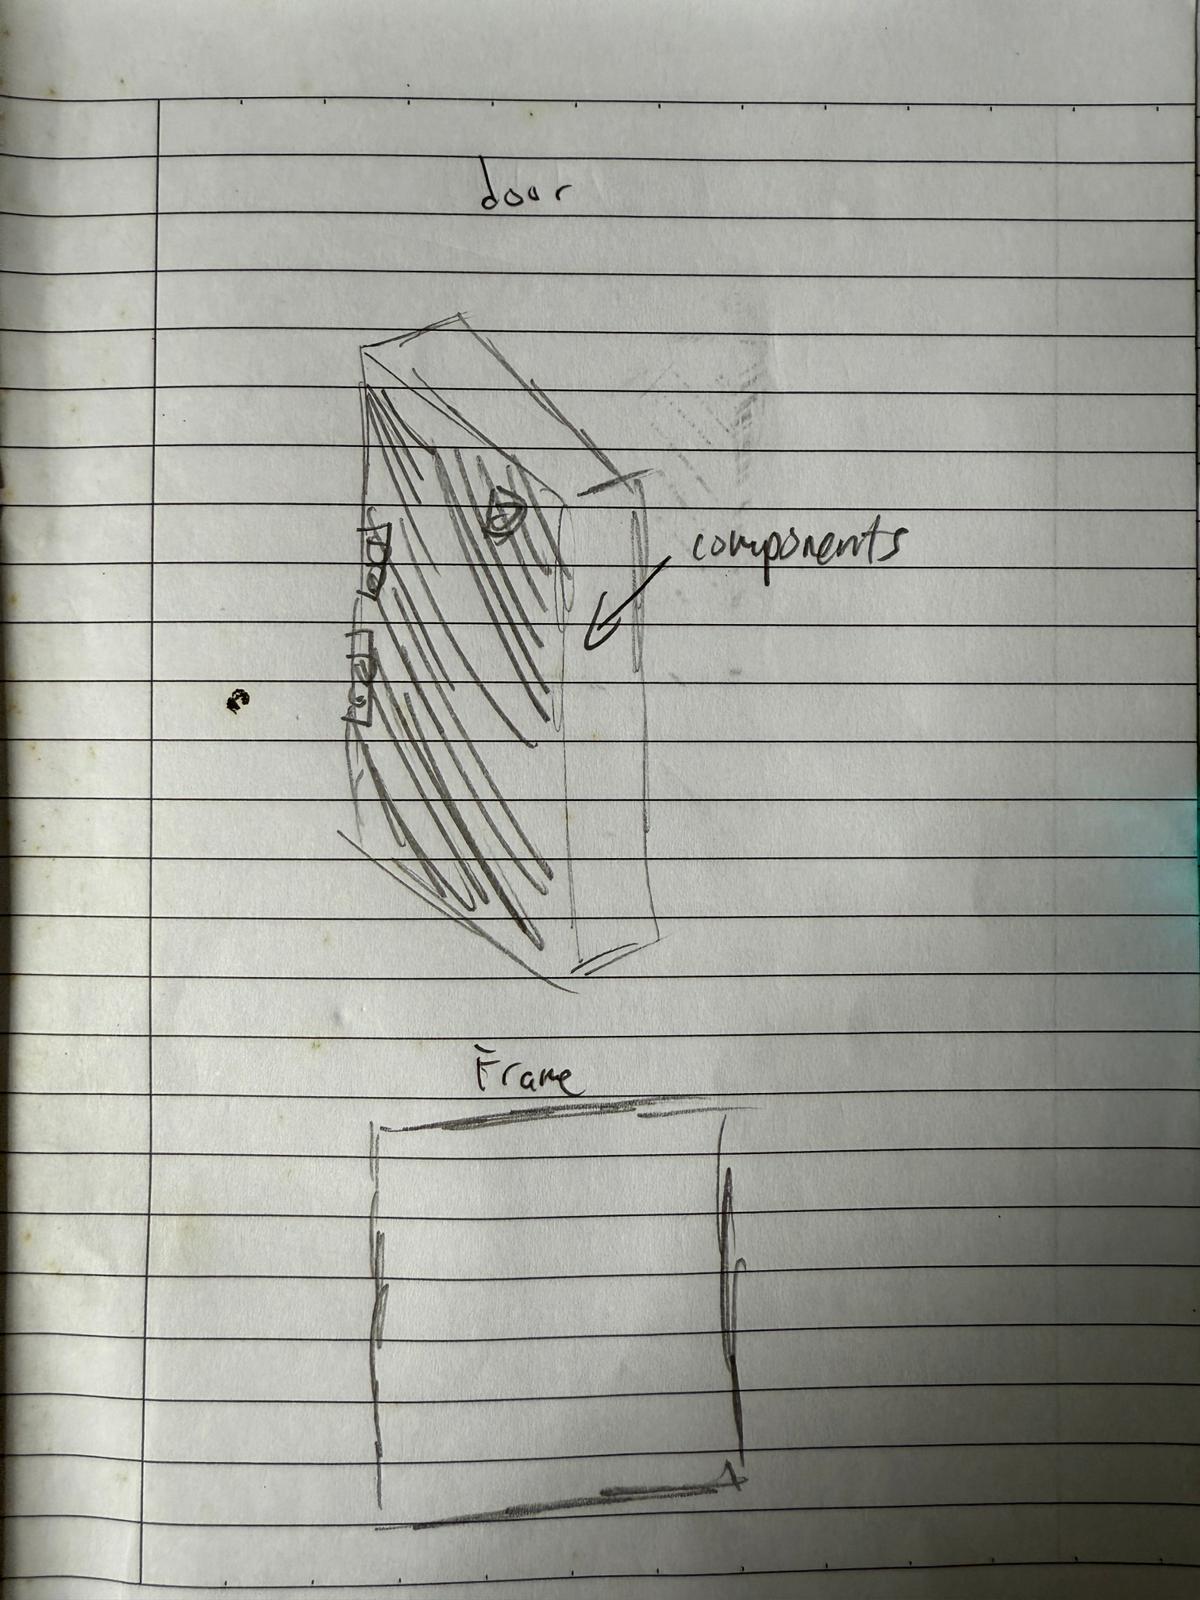 door
components
Frame